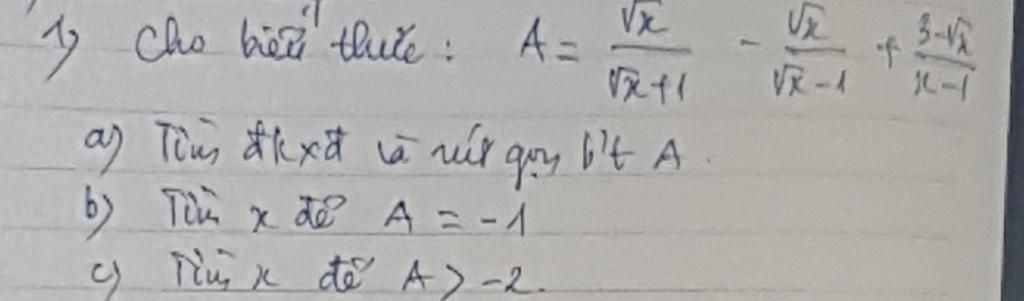 1) Cho biểu thức: A = \frac{\sqrt{x}}{\sqrt{x}+1} - \frac{\sqrt{x}}{\sqrt{x}-1} + \frac{3-\sqrt{x}}{x-1}
a) Tìm đkxđ và rút gọn b't A.
b) Tìm x để A = -1
c) Tìm x để A > -2.